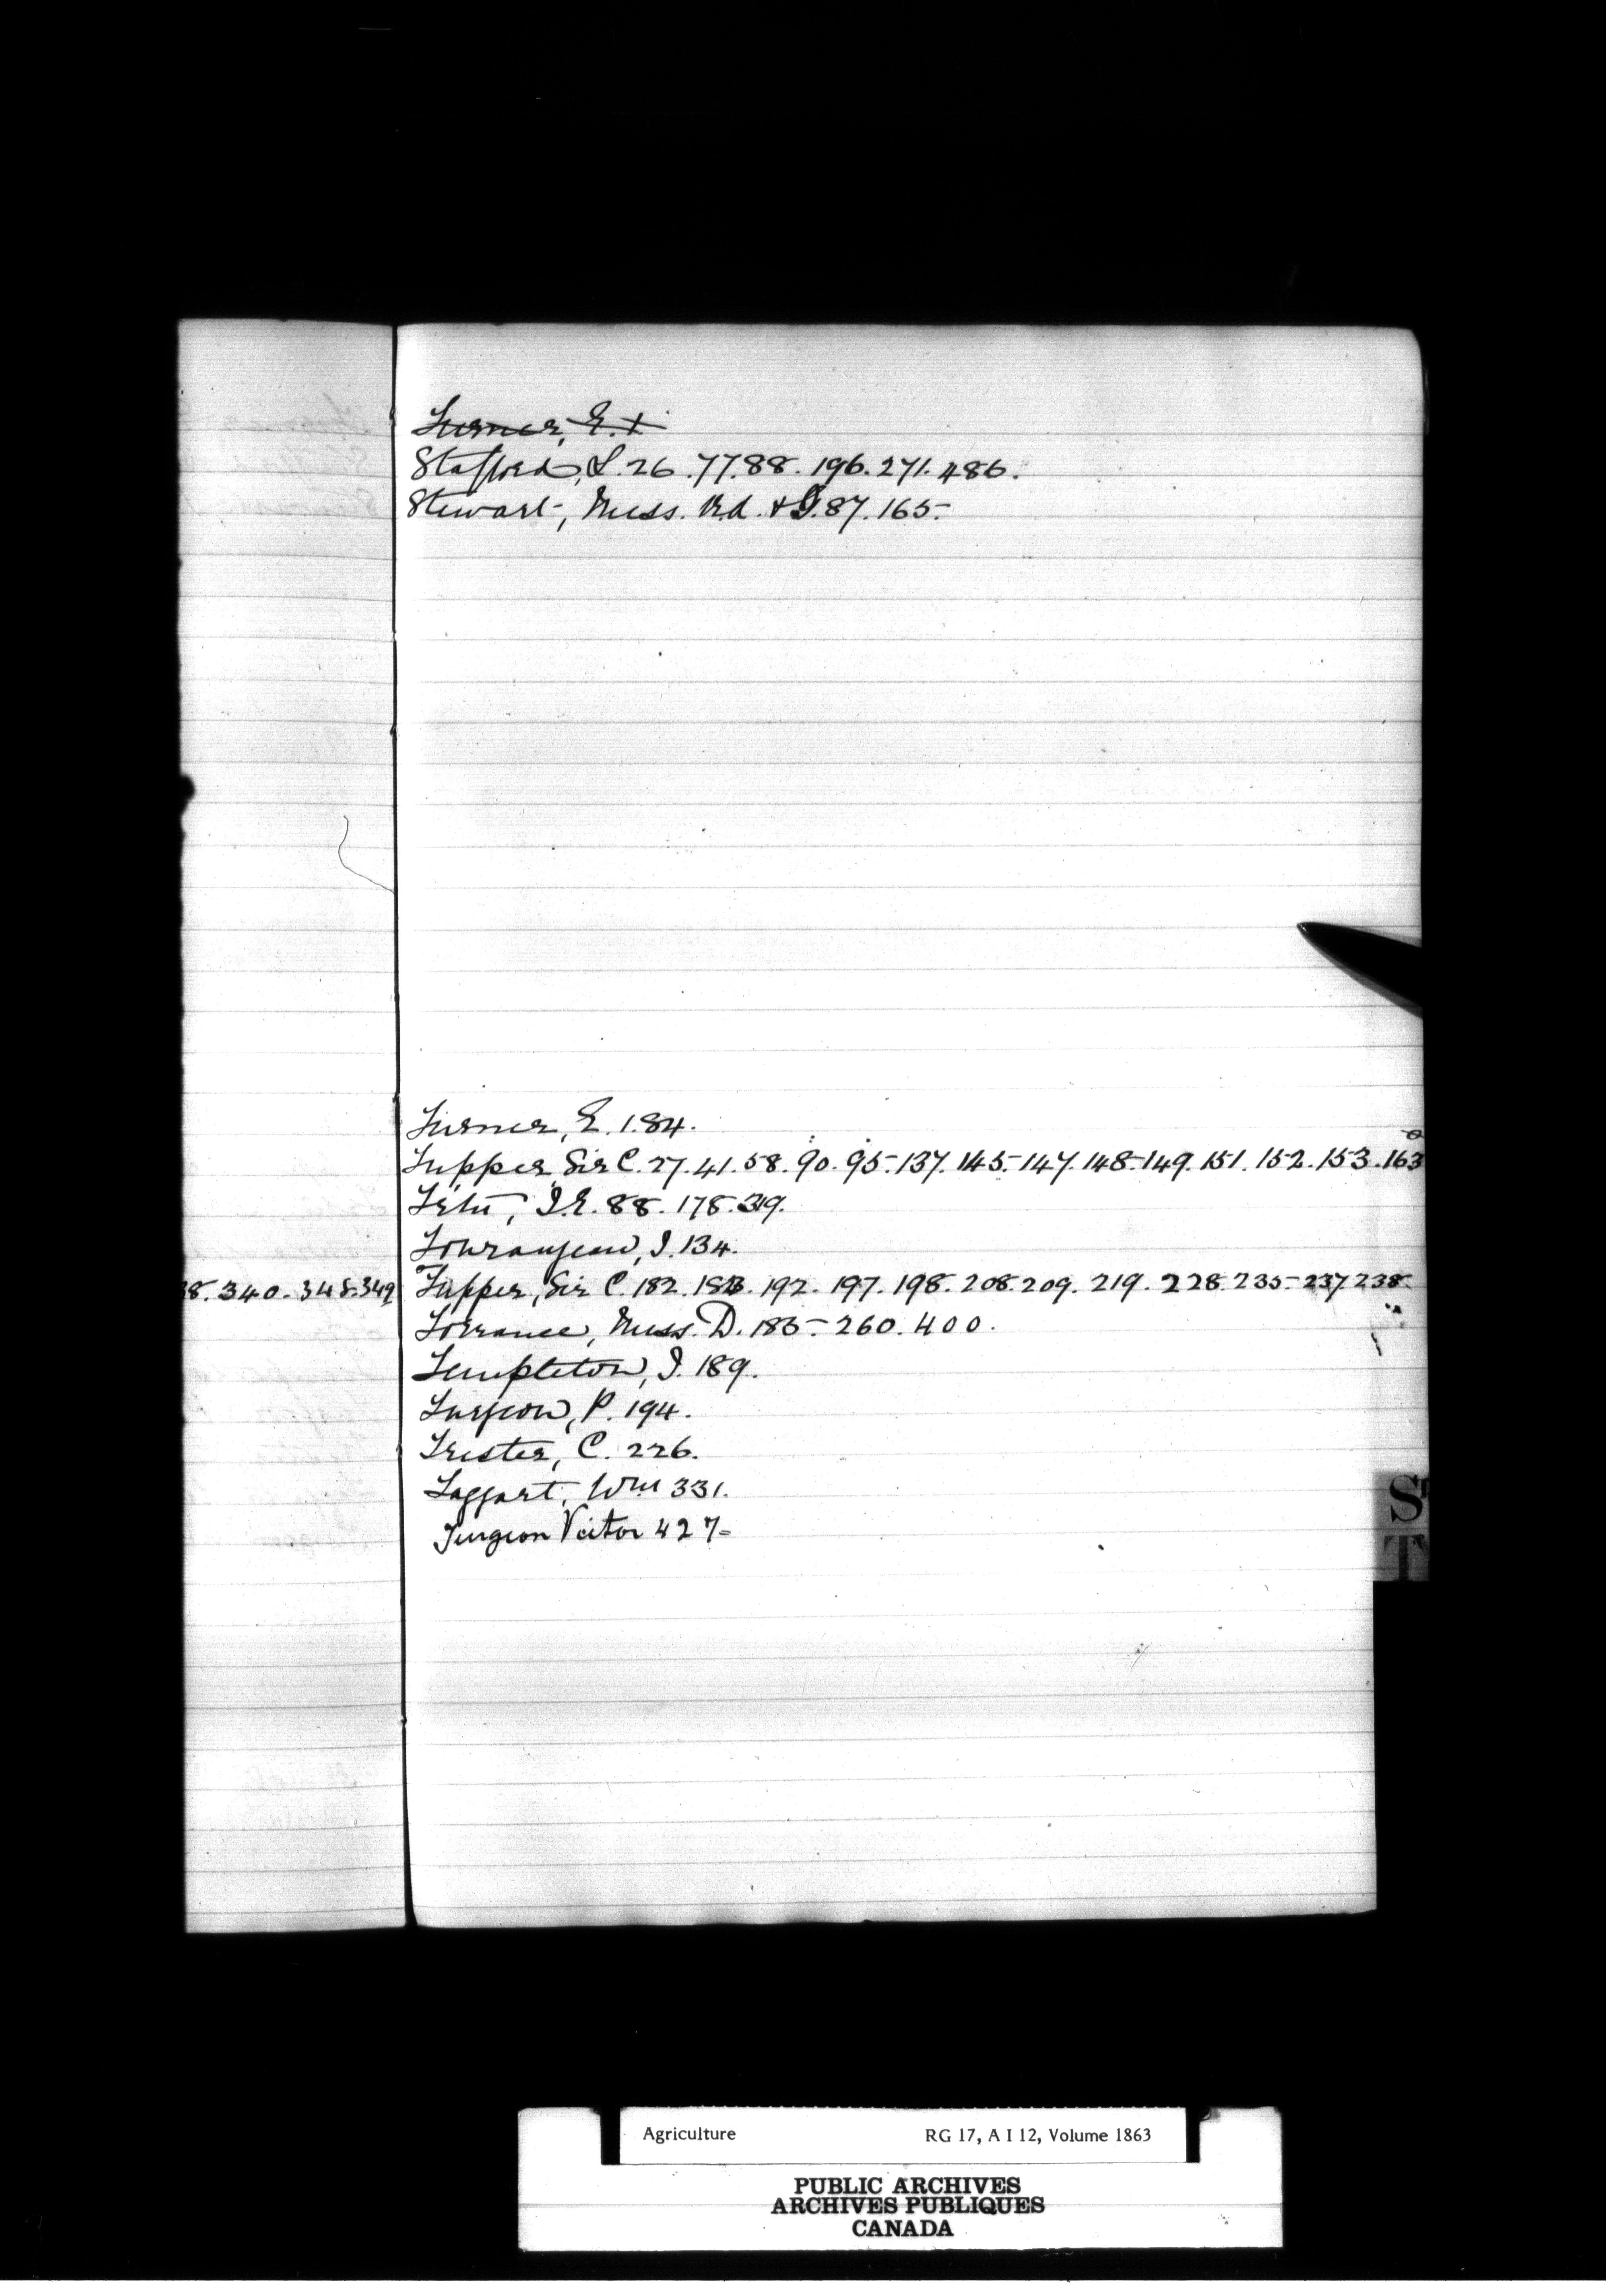 Turner, E. 1
Stafford, L. 26. 77. 88. 196. 271. 486.
Stewart, Mess. Rd. & J. 87. 165.
Turner, E. 184.
Tupper, Sir C. 27. 41. 58. 90. 95. 137. 145. 147. 148. 149. 151. 152. 153. 163
Tetu, J.E. 88. 178. 319.
Tourangeau, J. 134.
38. 340. 348. 349 Tupper, Sir C. 182. 183. 192. 197. 198. 208. 209. 219. 228. 235. 237. 238.
Torrance, Mess. D. 185. 260. 400.
Templeton, J. 189.
Turgeon, P. 194.
Trester, C. 226.
Taggart, Wm 331.
Turgeon Victor 427
S
T
Agriculture RG 17, A I 12, Volume 1863
PUBLIC ARCHIVES
ARCHIVES PUBLIQUES
CANADA